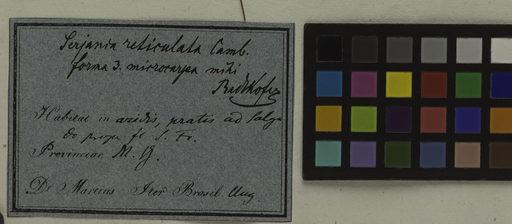 Serjania reticulata Camb.
forma 3. microcarpa mihi
Radlkofer
Habitat in aridis, pratis ad Salga
do prope fl. S. Fr.
Provinciae M. G.
Dr Martius Iter Brasil. Aug